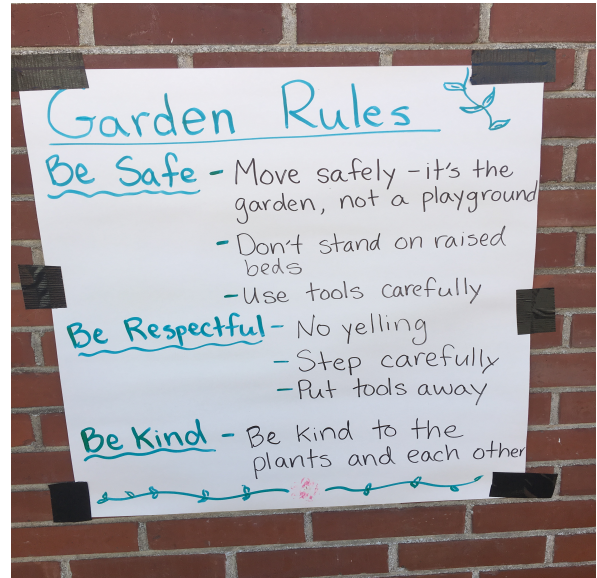 Garden Rules
Be Safe - Move safely - it's the
garden, not a playground
- Don't stand on raised
beds
- Use tools carefully
Be Respectful - No yelling
- Step carefully
- Put tools away
Be Kind - Be kind to the
plants and each other